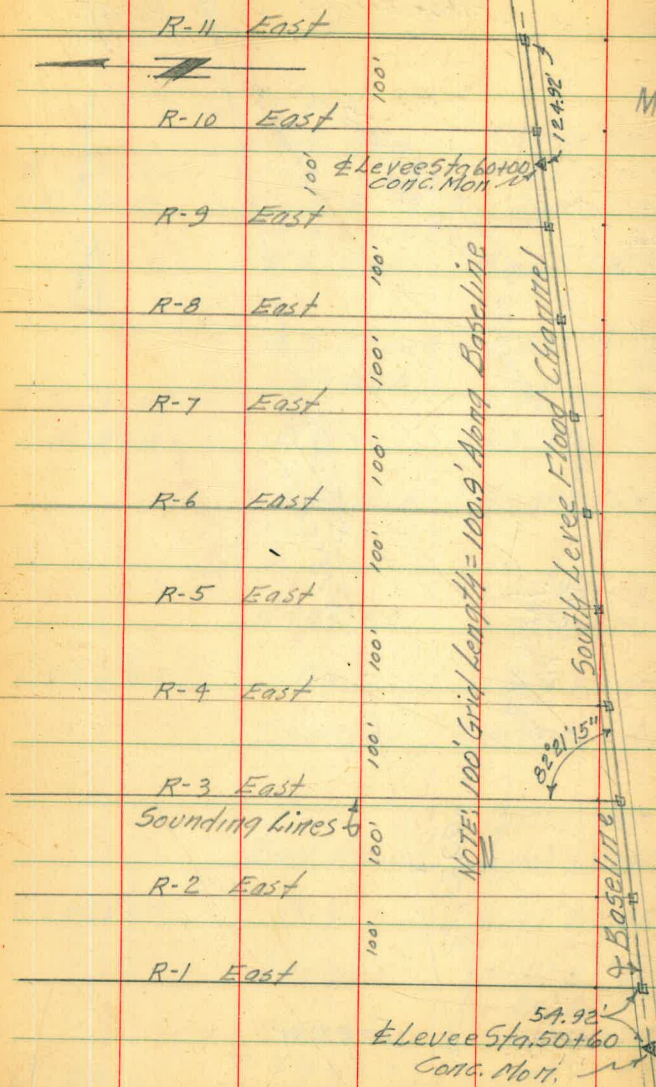 R-11 East
100'
124.92'
M
R-10 East
100'
℄ Levee Sta 60+00
Conc. Mon
R-9 East
100'
R-8 East
100'
R-7 East
100'
R-6 East
100'
R-5 East
100'
R-4 East
100'
82°21'15"
R-3 East
Sounding Lines
100'
R-2 East
100'
R-1 East
NOTE: 100' Grid Length = 100.9' Along Baseline
South Levee Flood Channel
& Baseline
54.92'
℄ Levee Sta. 50+60
Conc. Mon.